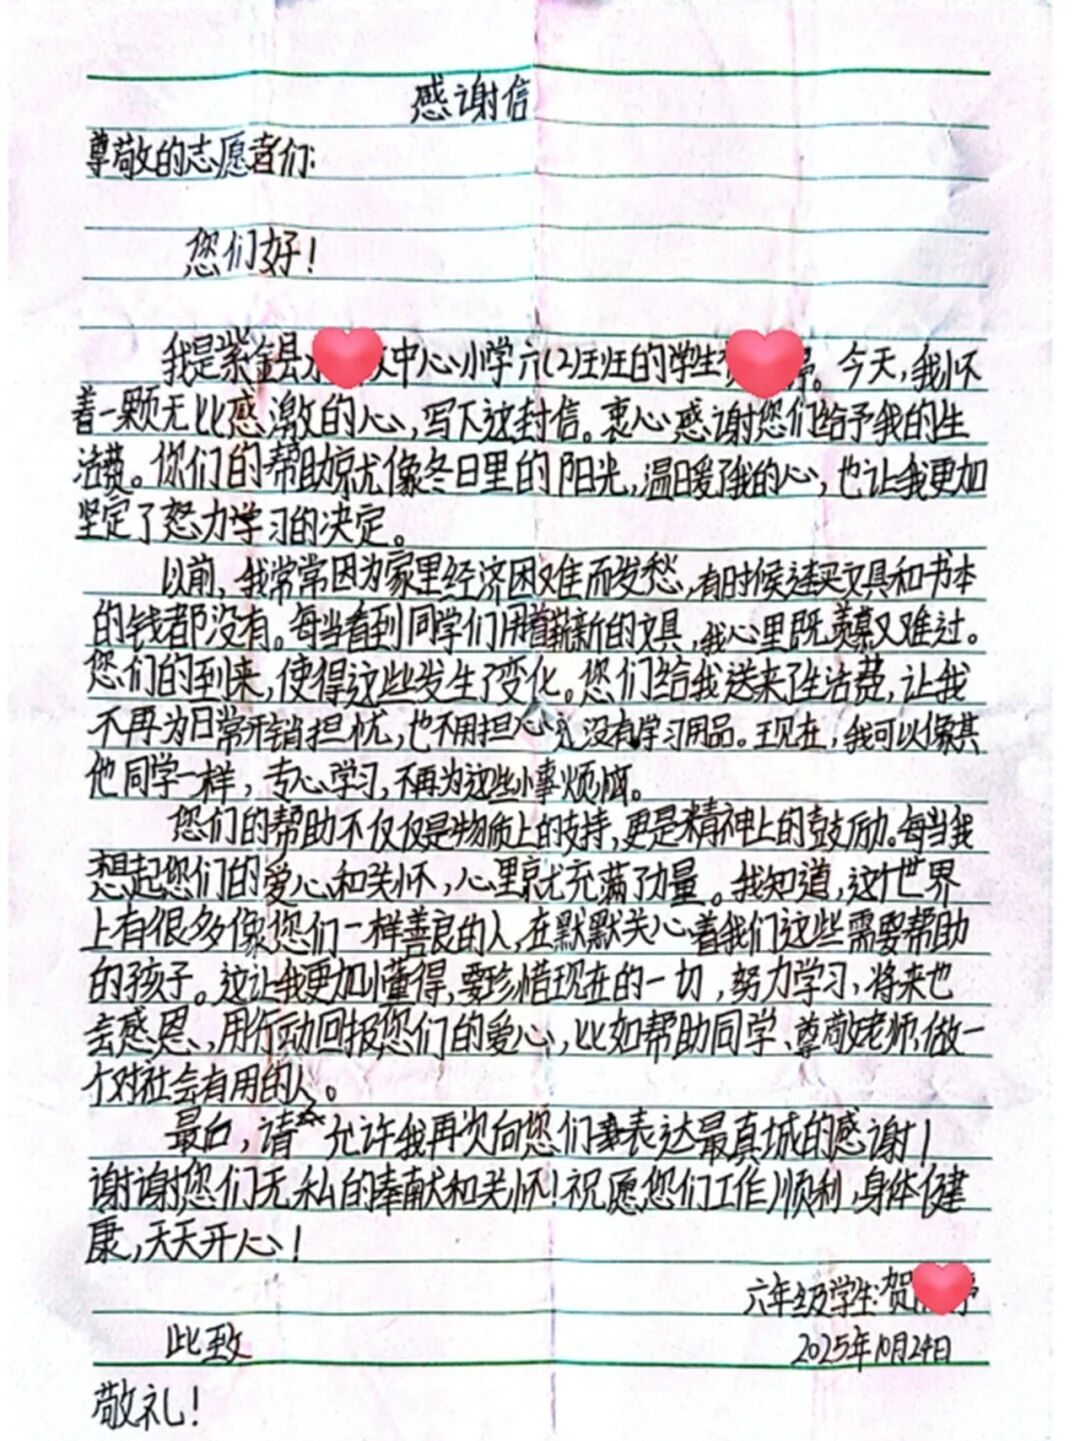 感谢信
尊敬的志愿者们:
您们好!
我是紫金县中心小学六(2)班班的学生。今天,我怀
着一颗无比感激的心,写下这封信。衷心感谢您们给予我的生
活费。你们的帮助就像冬日里的阳光,温暖了我的心,也让我更加
坚定了努力学习的决定。
以前,我常常因为家里经济困难而发愁,有时候连买文具和书本
的钱都没有。每当看到同学们用着崭新的文具,我心里既羡慕又难过。
您们的到来,使得这些发生了变化。您们给我送来了生活费,让我
不再为日常开销担忧,也不用担心没有学习用品。现在,我可以像其
他同学一样,专心学习,不再为这些事烦恼。
您们的帮助不仅仅是物质上的支持,更是精神上的鼓励。每当我
想起您们的爱心和关怀,心里就充满了力量。我知道,这个世界
上有很多像您们一样善良的人,在默默关心着我们这些需要帮助
的孩子。这让我更加懂得,要珍惜现在的一切,努力学习,将来也
会感恩,用行动回报您们的爱心,比如帮助同学、尊敬老师,做一
个对社会有用的人。
最后,请允许我再次向您们表达最真城的感谢!
谢谢您们无私的奉献和关怀!祝愿您们工作顺利,身体健
康,天天开心!
六年级学生:贺
此致
2025年10月24日
敬礼!